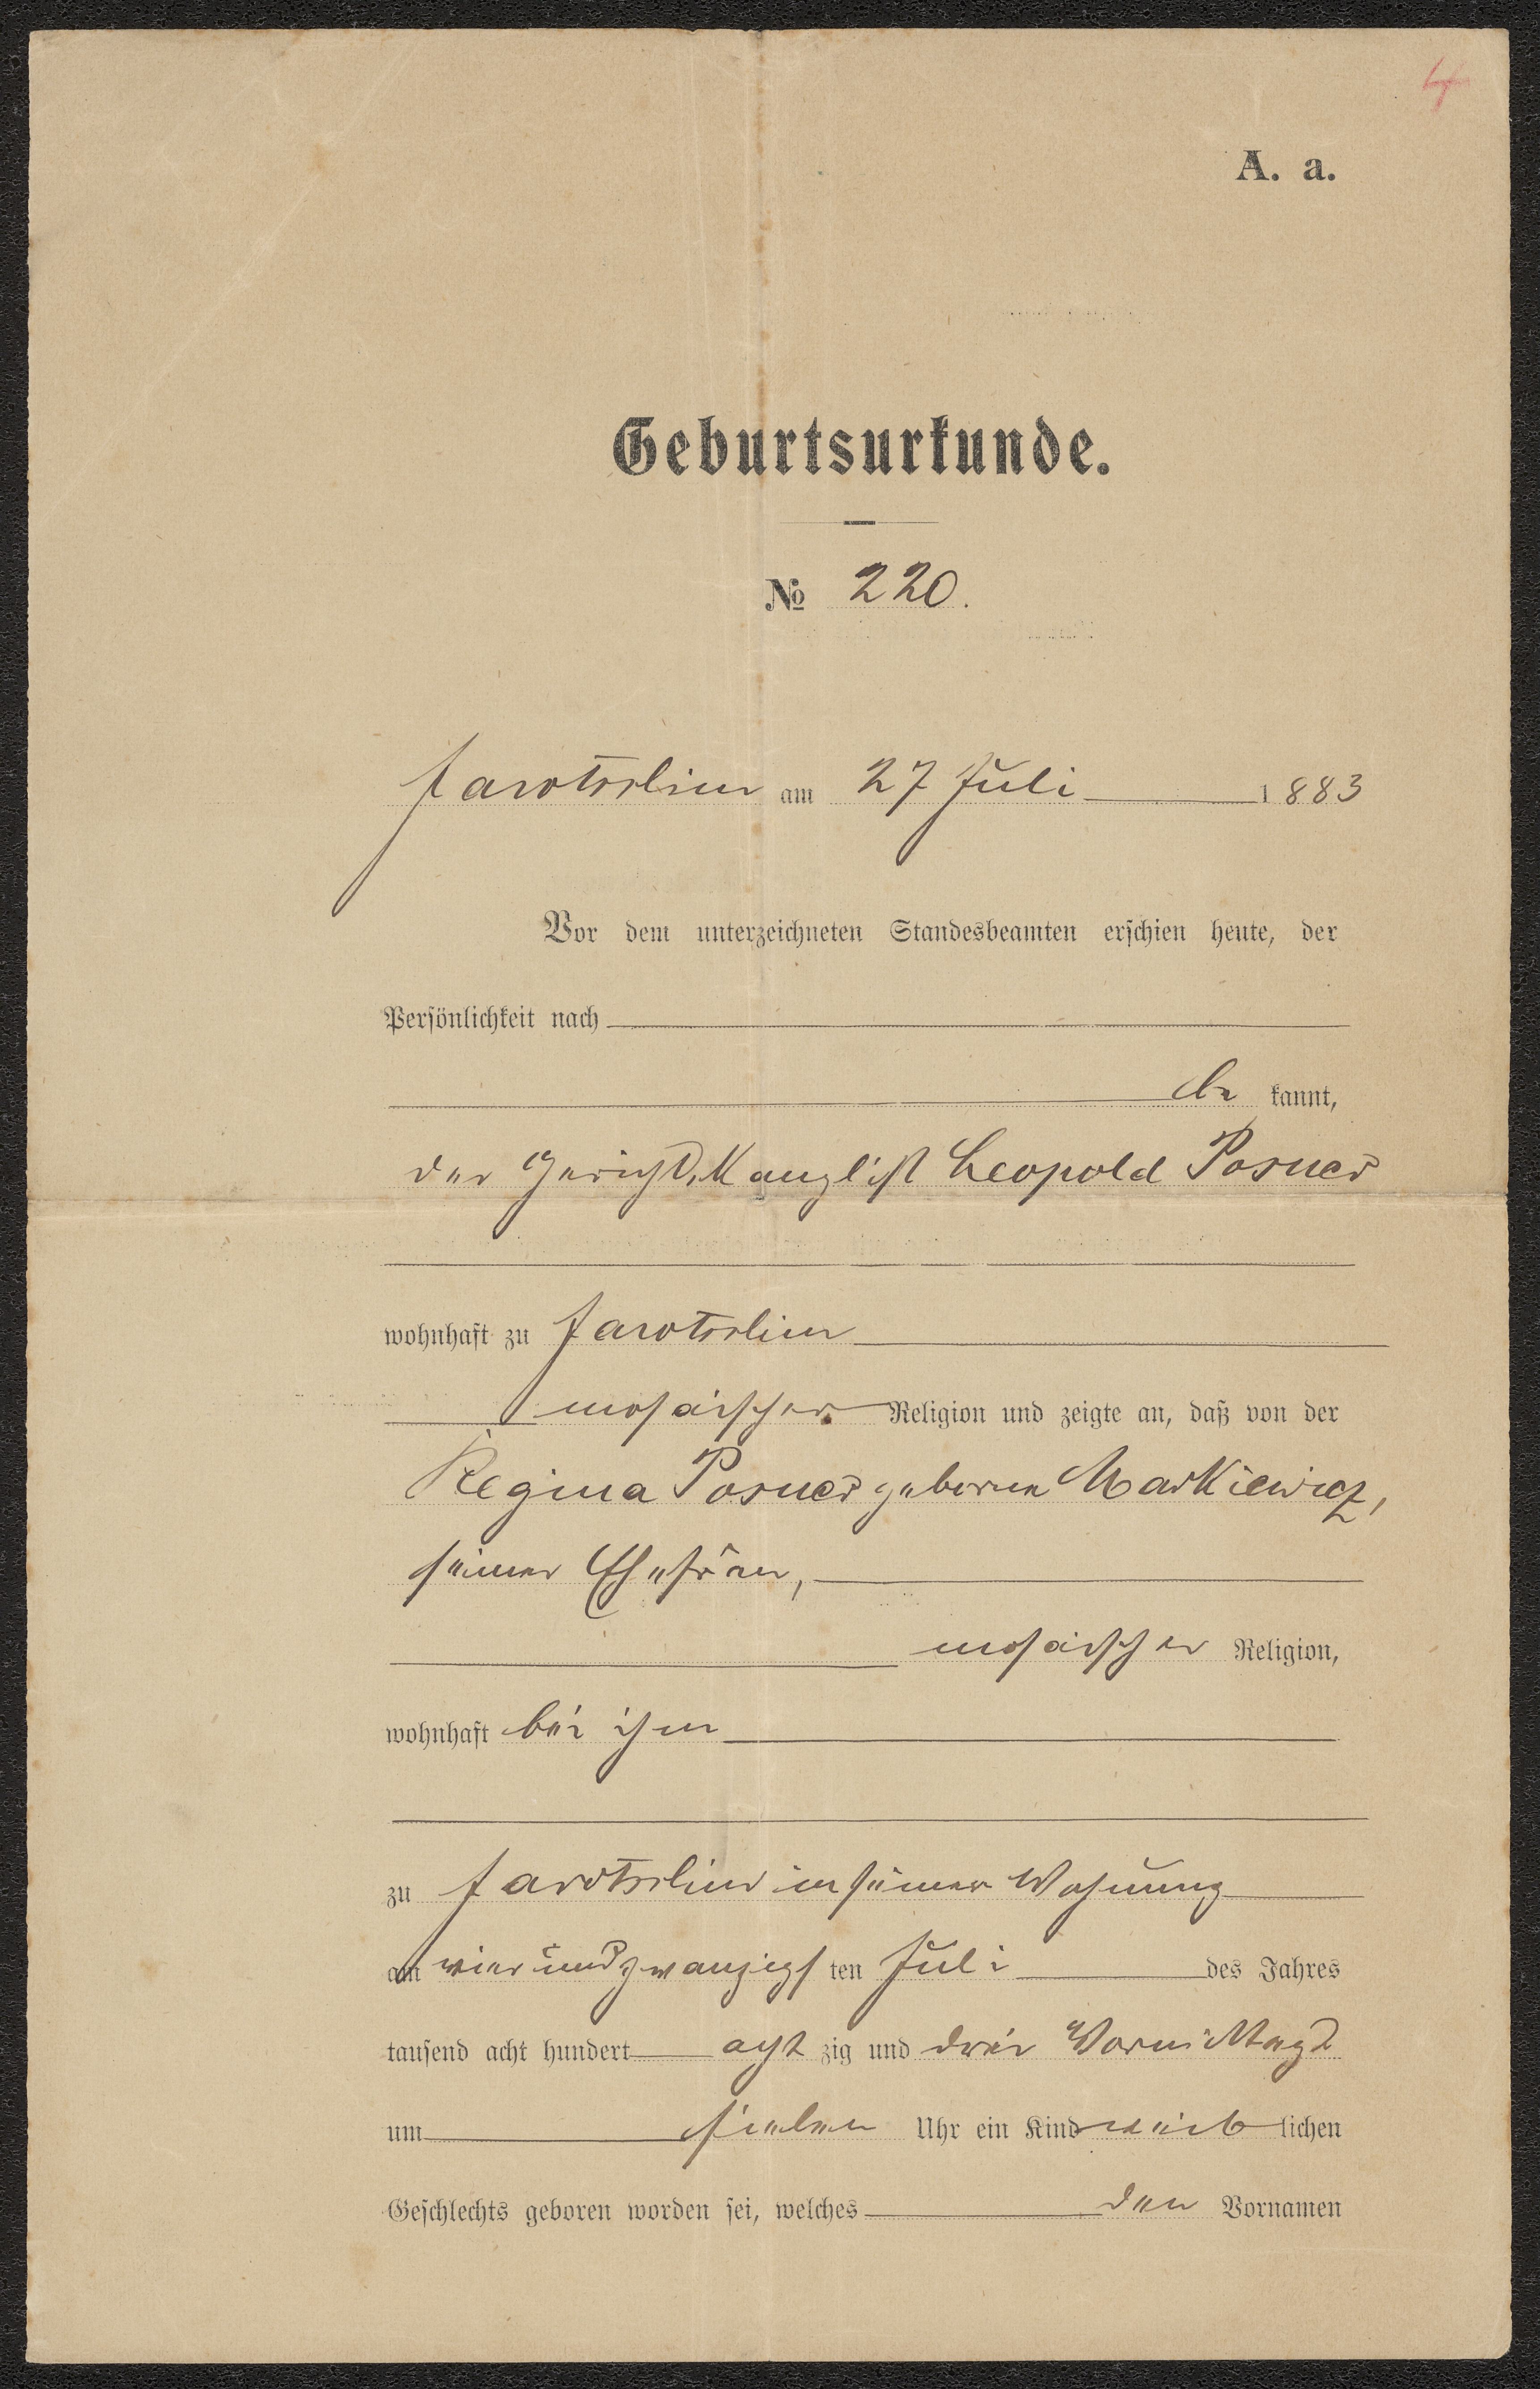 4
A. a.
Geburtsurkunde.
№ 220.
Jarotschin am 27 Juli 1883
Vor dem unterzeichneten Standesbeamten erschien heute, der
Persönlichkeit nach
be kannt,
der Gerichts-Kanzlist Leopold Posner
wohnhaft zu Jarotschin
mosaischer Religion und zeigte an, daß von der
Regina Posner geborne Markiewicz,
seiner Ehefrau,
mosaischer Religion,
wohnhaft bei ihm
zu Jarotschin in seiner Wohnung
am vierundzwanzigs ten Juli des Jahres
tausend acht hundert acht zig und drei Vormittags
um sieben Uhr ein Kind weib lichen
Geschlechts geboren worden sei, welches den Vornamen